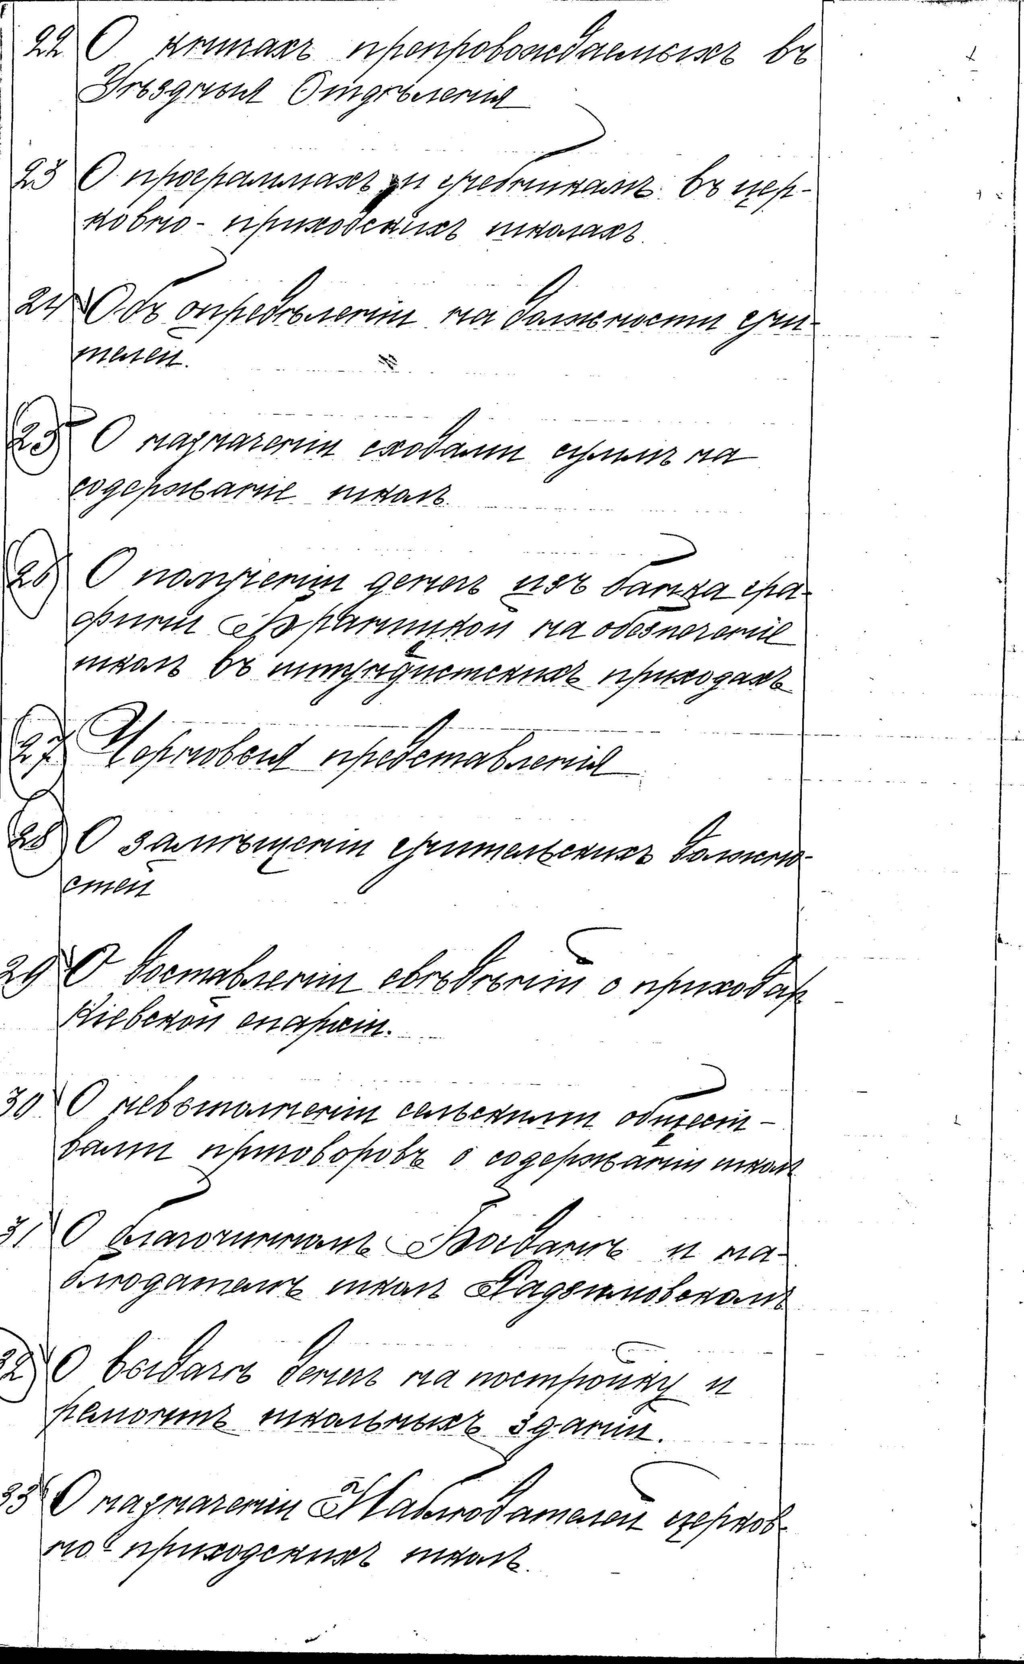 22 О книгахъ препровождаемыхъ въ
Уѣздныя Отдѣленія
23 О программахъ и учебникамъ въ цер-
ковно-приходскихъ школахъ.
24 Объ опредѣленіи на должности учи-
телей.
25 О назначеніи сходами суммъ на
содержаніе школъ
26 О полученіи денегъ изъ банка гра-
фини Браницкой на обезпеченіе
школъ въ штундистскихъ приходахъ
27 Черновыя представленія
28 О замѣщеніи учительскихъ должно-
стей
29 О доставленіи свѣдѣній о приходах
Кіевской епархіи.
30 О невыполненіи сельскими общест-
вами приговоровъ о содержаніи школ
31 О благочинномъ Богданѣ и на-
блюдателѣ школ Радзимовскомъ
32 О выдачѣ денегъ на постройку и
ремонтъ школьныхъ зданій.
33 О назначеніи Наблюдателей церков-
но приходскихъ школъ.